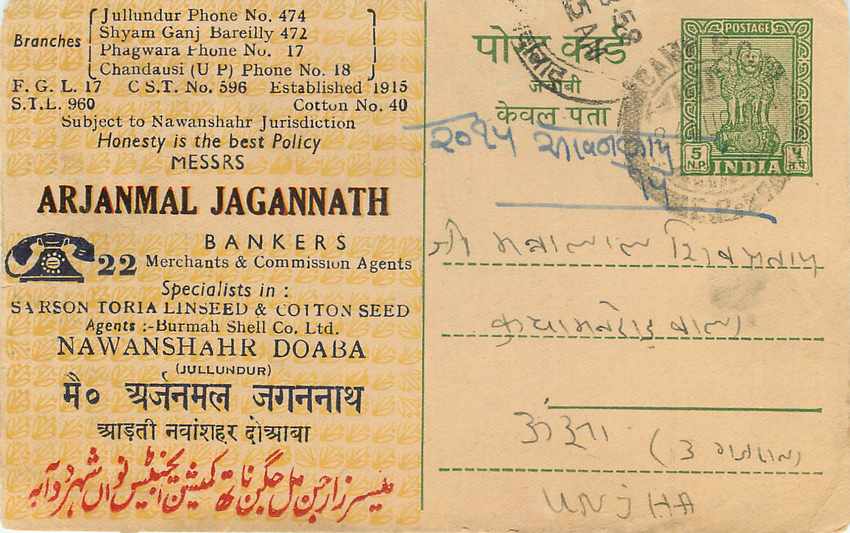 Branches
Jullundur Phone No. 474
Shyam Ganj Bareilly 472
Phagwara Phone No. 17
Chandausi (U P) Phone No. 18
F. G. L. 17 C S T. No. 596 Established 1915
S.T.L. 960 Cotton No. 40
Subject to Nawanshahr Jurisdiction
Honesty is the best Policy
MESSRS
ARJANMAL JAGANNATH
BANKERS
22 Merchants & Commission Agents
Specialists in :
SARSON TORIA LINSEED & COTTON SEED
Agents :-Burmah Shell Co. Ltd.
NAWANSHAHR DOABA
(JULLUNDUR)
मै० अर्जनमल जगननाथ
आड़ती नवांशहर दोआबा
میسرز ارجن مل جگن ناتھ کمیشن ایجنٹس نواں شہر دوآبہ
पोस्ट कार्ड
जवाबी
केवल पता
POSTAGE
5 N.P.
INDIA
५ न.पै.
२०१५
श्री मन्नालाल शिवप्रताप
ऊंझा
UNJHA